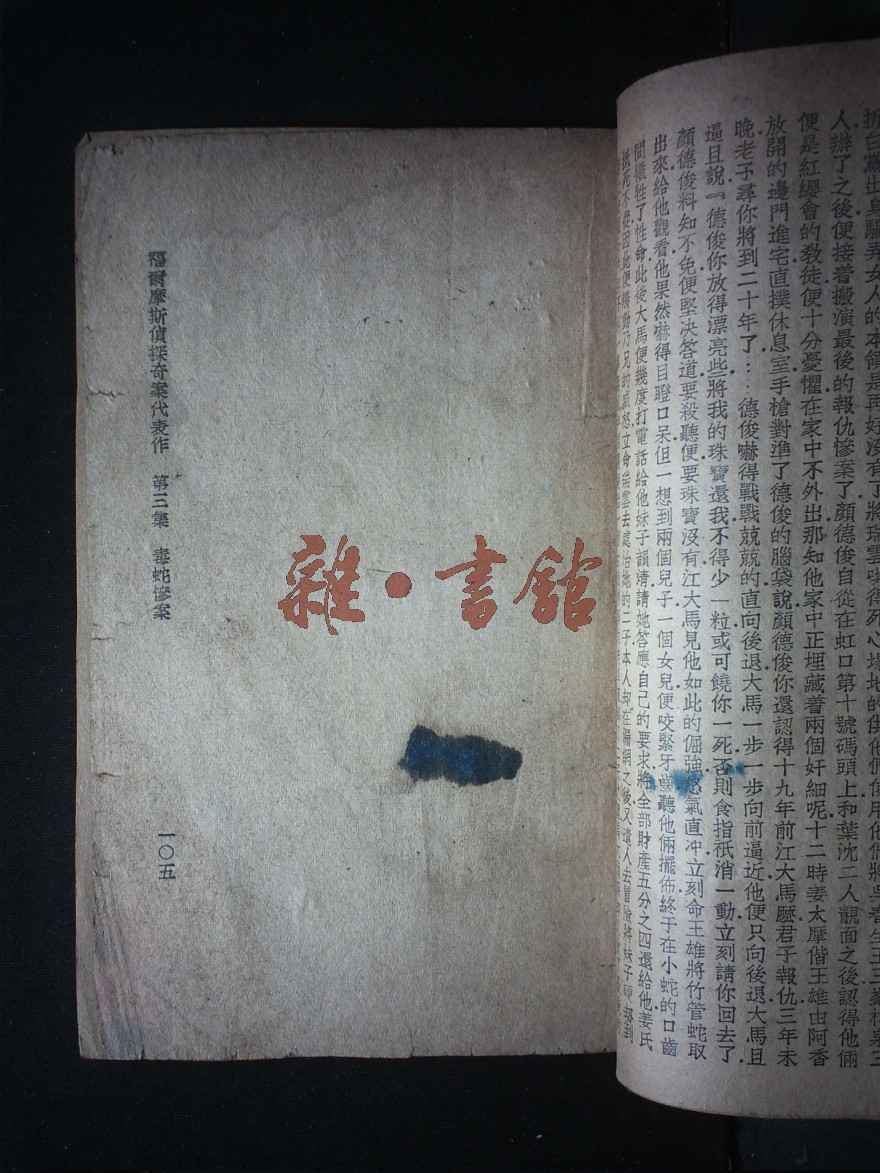 折白黨出身騙弄女人的本領是再好沒有了將瑞雲
得死心場地的供他們使用他們將吳春生王三
人辦了之後便接着搬演最後的報仇慘案了顏德俊自從在虹口第十號碼頭上和葉沈二人覿面之後認得他倆
便是紅纓會的教徒便十分憂懼在家中不外出那知他家中正埋藏着兩個奸細呢十二時姜太摩偕王雄由阿香
放開的邊門進宅直撲休息室手槍對準了德俊的腦袋說顏德俊你還認得十九年前江大馬麽君子報仇三年未
晚老子尋你將到二十年了…德俊嚇得戰戰兢兢的直向後退大馬一步一步向前逼近他便只向後退大馬且
逼且說『德俊你放得漂亮些將我的珠寶還我不得少一粒或可饒你一死否則食指祇消一動立刻請你回去了
顏德俊料知不免便堅决答道要殺聽便要珠寶沒有江大馬見他如此的倔強怒氣直冲立刻命王雄將竹管蛇取
出來給他觀看他果然嚇得目瞪口呆但一想到兩個兒子一個女兒便咬緊牙齒聽他倆擺佈終于在小蛇的口齒
間犧牲了性命此後大馬便幾度打電話給他妹子韻清請她答應自己的要求將全部財產五分之四還給他姜氏
抵死不從因此便觸動乃兄的威怒立命瑞雲去處治她的二子本人却在漏網之後又遣人去冒險將妹子
福爾摩斯偵探奇案代表作 第三集 毒蛇慘案
一〇五
雜・書館